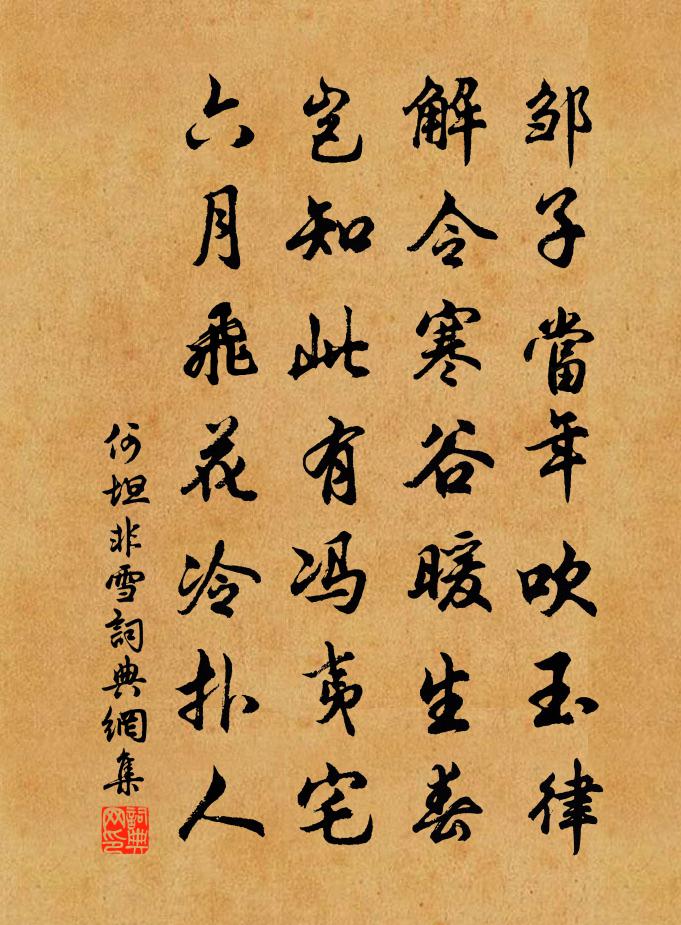 邹子當年吹玉律
解令寒谷暖生春
岂知此有冯夷宅
六月飛花冷扑人
何坦非雪詞典網集
詞典网印